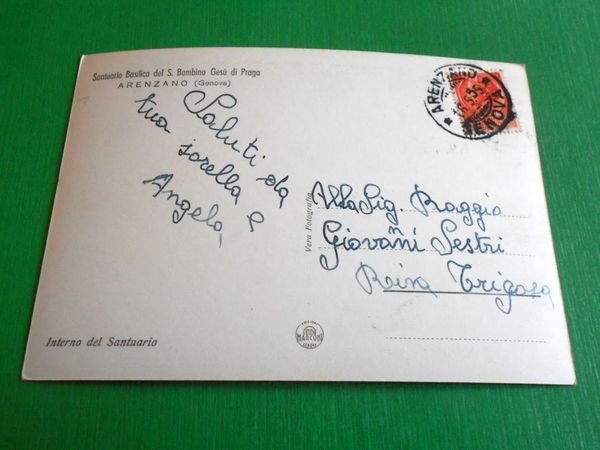 Santuario Basilica del S. Bambino Gesù di Praga
ARENZANO (Genova)
Saluti da
tua sorella e
Angela
Vera Fotografia
Alla Sig. Raggio
Giovanni Sestri
Riva Trigoso
ARENZANO
GENOVA
Interno del Santuario
MARCONI
GENOVA